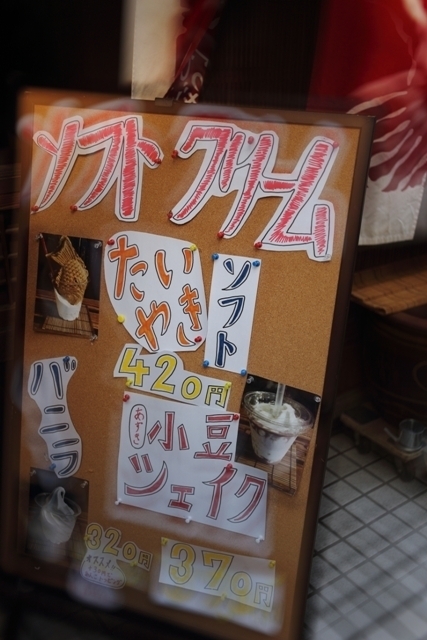 ソフトクリーム
たい
やき
ソフト
420円
バニラ
あずき
小豆
シェイク
320円
370円